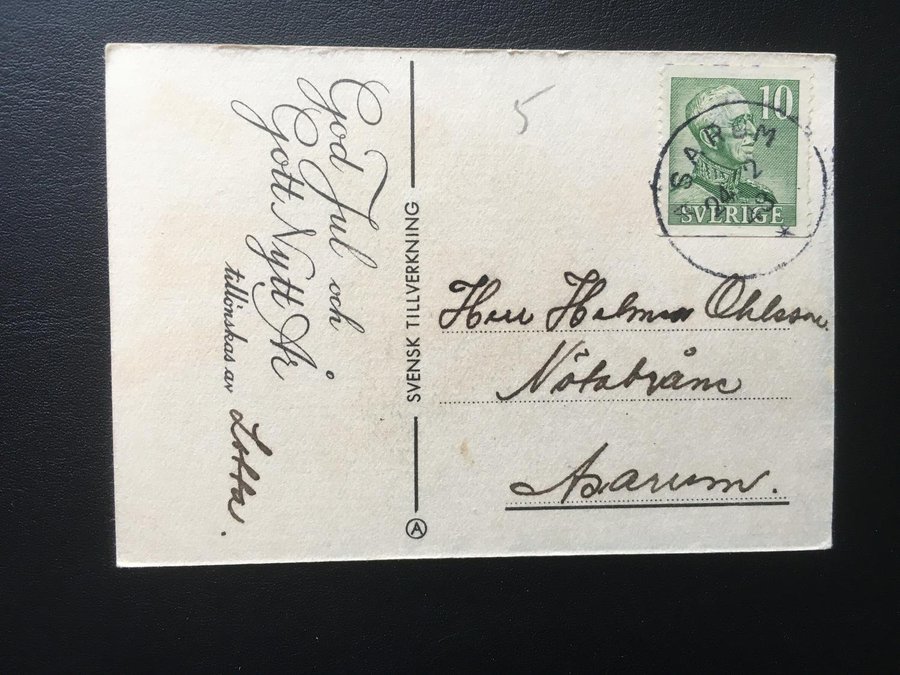 God Jul och
Gott Nytt År
tillönskas av Lotta.
SVENSK TILLVERKNING
A
5
10
SVERIGE
ASARUM
24 12
Herr Holmer Ohlsson
Nötabråne
Asarum.